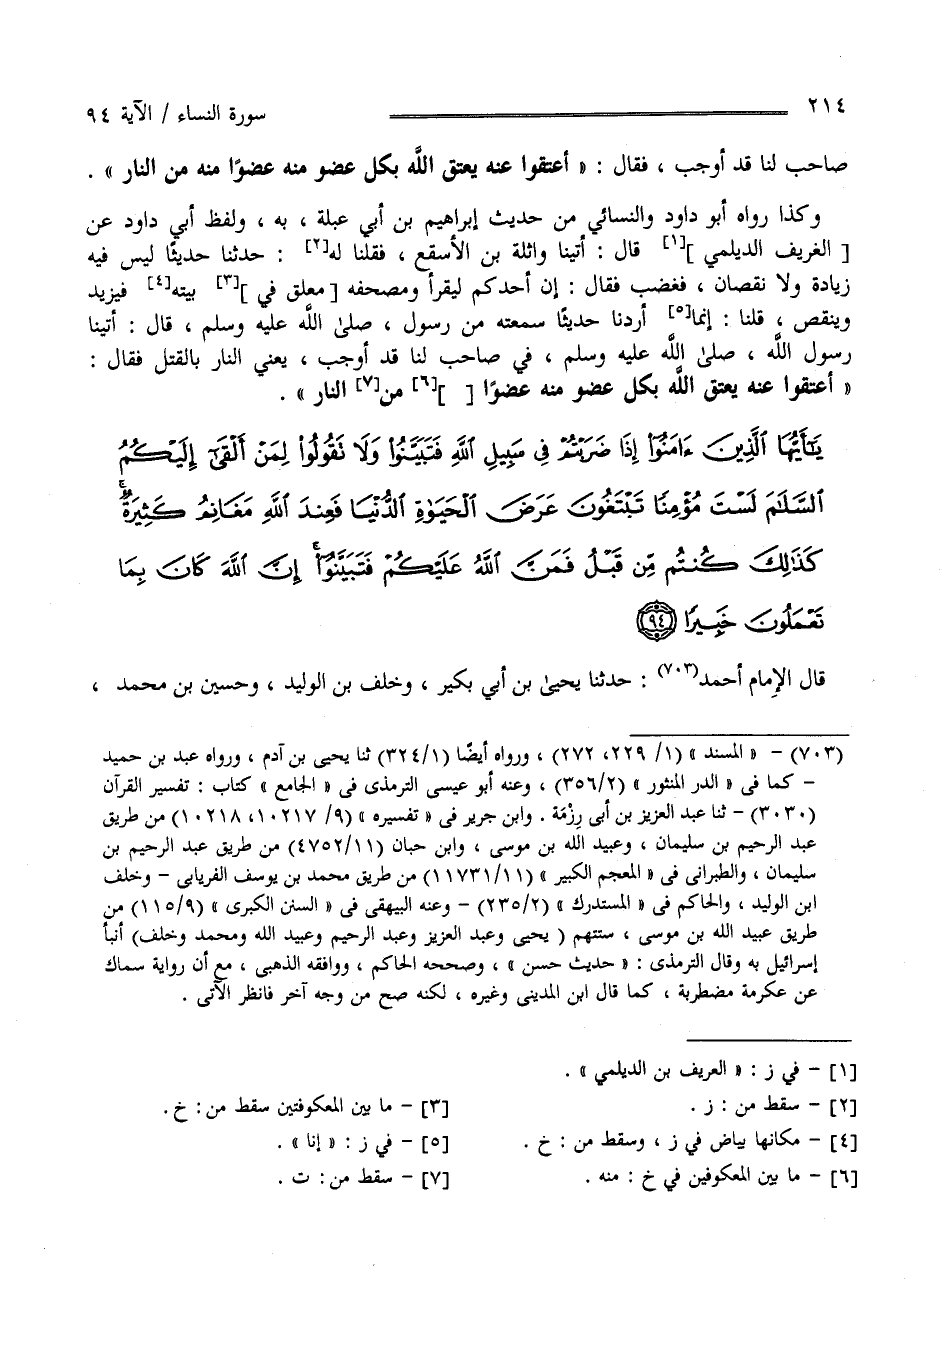 ٢١٤
سورة النساء / الآية ٩٤
صاحب لنا قد أوجب ، فقال : « أعتقوا عنه يعتق اللَّه بكل عضو منه عضوًا منه من النار » .
وكذا رواه أبو داود والنسائي من حديث إبراهيم بن أبي عبلة ، به ، ولفظ أبي داود عن
[ الغريف الديلمي ][١] قال : أتينا واثلة بن الأسقع ، فقلنا له[٢] : حدثنا حديثًا ليس فيه
زيادة ولا نقصان ، فغضب فقال : إن أحدكم ليقرأ ومصحفه [ معلق في ][٣] بيته[٤] فيزيد
وينقص ، قلنا : إنما[٥] أردنا حديثًا سمعته من رسول ، صلىٰ اللَّه عليه وسلم ، قال : أتينا
رسول اللَّه ، صلىٰ اللَّه عليه وسلم ، في صاحب لنا قد أوجب ، يعني النار بالقتل فقال :
« أعتقوا عنه يعتق اللَّه بكل عضو منه عضوًا [ ][٦] من[٧] النار » .
يَٰٓأَيُّهَا ٱلَّذِينَ ءَامَنُوٓا۟ إِذَا ضَرَبْتُمْ فِى سَبِيلِ ٱللَّهِ فَتَبَيَّنُوا۟ وَلَا تَقُولُوا۟ لِمَنْ أَلْقَىٰٓ إِلَيْكُمُ
ٱلسَّلَٰمَ لَسْتَ مُؤْمِنًا تَبْتَغُونَ عَرَضَ ٱلْحَيَوٰةِ ٱلدُّنْيَا فَعِندَ ٱللَّهِ مَغَانِمُ كَثِيرَةٌ ۚ
كَذَٰلِكَ كُنتُم مِّن قَبْلُ فَمَنَّ ٱللَّهُ عَلَيْكُمْ فَتَبَيَّنُوٓا۟ ۚ إِنَّ ٱللَّهَ كَانَ بِمَا
تَعْمَلُونَ خَبِيرًا ﴿٩٤﴾
قال الإمام أحمد(٧٠٣) : حدثنا يحيىٰ بن أبي بكير ، وخلف بن الوليد ، وحسين بن محمد ،
(٧٠٣) – « المسند » (١/ ٢٢٩، ٢٧٢) ، ورواه أيضًا (٣٢٤/١) ثنا يحيى بن آدم ، ورواه عبد بن حميد
– كما فى « الدر المنثور » (٣٥٦/٢) ، وعنه أبو عيسى الترمذى فى « الجامع » كتاب : تفسير القرآن
(٣٠٣٠) – ثنا عبد العزيز بن أبى رِزْمَة . وابن جرير فى « تفسيره » (٩/ ١٠٢١٧، ١٠٢١٨) من طريق
عبد الرحيم بن سليمان ، وعبيد الله بن موسى ، وابن حبان (٤٧٥٢/١١) من طريق عبد الرحيم بن
سليمان ، والطبرانى فى « المعجم الكبير » (١١٧٣١/١١) من طريق محمد بن يوسف الفريابى – وخلف
ابن الوليد ، والحاكم فى « المستدرك » (٢٣٥/٢) – وعنه البيهقى فى « السنن الكبرى » (١١٥/٩) من
طريق عبيد الله بن موسى ، ستتهم ( يحيى وعبد العزيز وعبد الرحيم وعبيد الله ومحمد وخلف) أنبأ
إسرائيل به وقال الترمذى : « حديث حسن » ، وصححه الحاكم ، ووافقه الذهبى ، مع أن رواية سماك
عن عكرمة مضطربة ، كما قال ابن المدينى وغيره ، لكنه صح من وجه آخر فانظر الآتى .
[١] – في ز : « العريف بن الديلمي » .
[٢] – سقط من : ز .
[٣] – ما بين المعكوفتين سقط من : خ .
[٤] – مكانها بياض في ز ، وسقط من : خ .
[٥] – في ز : « إنا » .
[٦] – ما بين المعكوفين في خ : منه .
[٧] – سقط من : ت .